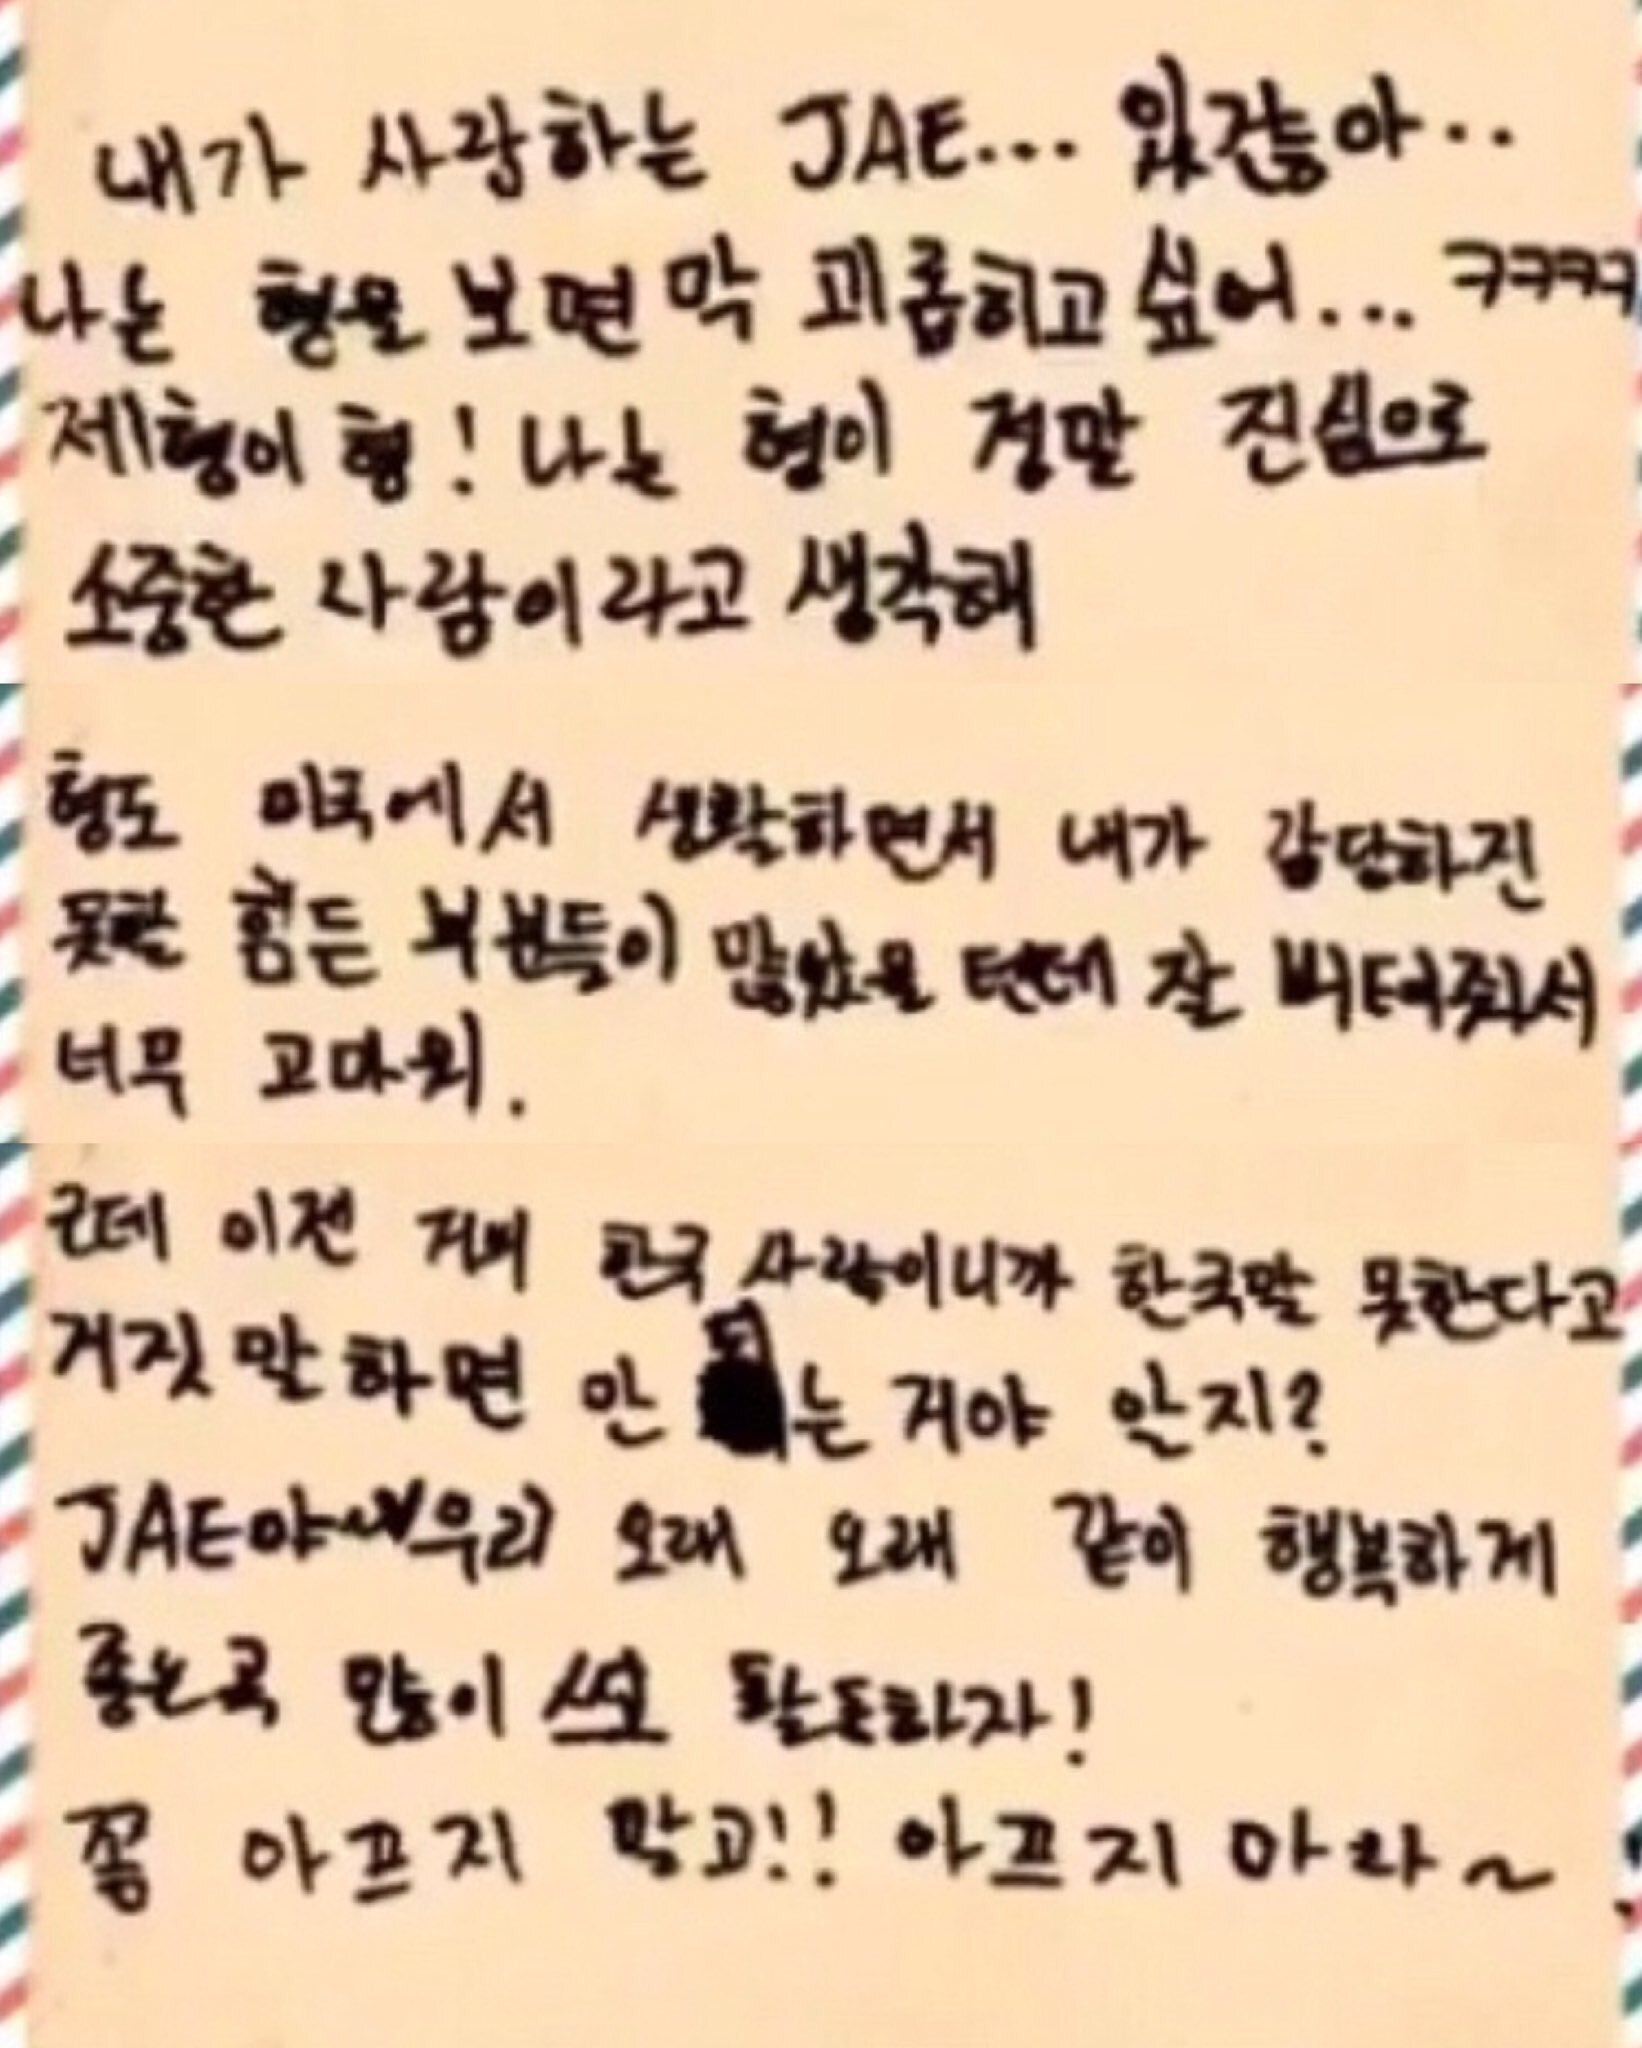 내가 사랑하는 JAE... 있잖아..
나는 형을 보면 막 괴롭히고 싶어... ㅋㅋㅋㅋ
제형이 형! 나는 형이 정말 진심으로
소중한 사람이라고 생각해
형도 미국에서 생활하면서 내가 감당하진
못할 힘든 부분들이 많았을 텐데 잘 버텨줘서
너무 고마워.
근데 이젠 거의 한국 사람이니까 한국말 못한다고
거짓말하면 안 되는 거야 알지?
JAE야~ 우리 오래 오래 같이 행복하게
좋은 곡 많이 써서 활동하자!
꼭 아프지 말고!! 아프지 마라~